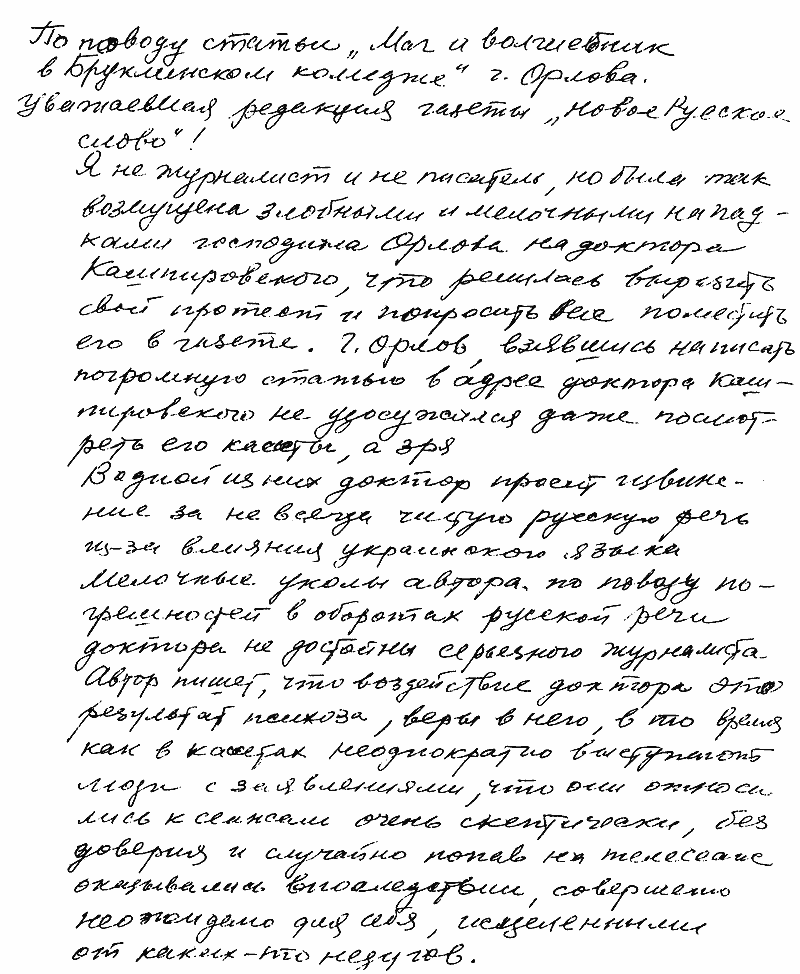 По поводу статьи „Маг и волшебник
в Бруклинском колледже" г. Орлова.
Уважаемая редакция газеты „Новое Русское
слово"!
Я не журналист и не писатель, но была так
возмущена злобными и мелочными напад-
ками господина Орлова на доктора
Кашпировского, что решилась выразить
свой протест и попросить Вас поместить
его в газете. Г. Орлов, взявшись написать
погромную статью в адрес доктора Каш-
пировского не удосужился даже посмот-
реть его кассеты, а зря
В одной из них доктор просит извине-
ние за не всегда чистую русскую речь
из-за влияния украинского языка
Мелочные уколы автора по поводу по-
грешностей в оборотах русской речи
доктора не достойны серьезного журналиста
Автор пишет, что воздействие доктора это
результат психоза, веры в него, в то время
как в кассетах неоднократно выступают
люди с заявлениями, что они относи
лись к сеансам очень скептически, без
доверия и случайно попав на телесеанс
оказывались впоследствии, совершенно
неожидано для себя, исцеленными
от каких-то недугов.